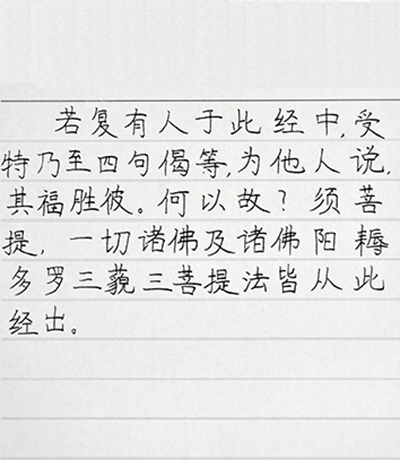 若复有人于此经中,受
特乃至四句偈等,为他人说,
其福胜彼。何以故?须菩
提,一切诸佛及诸佛阳耨
多罗三藐三菩提法皆从此
经出。